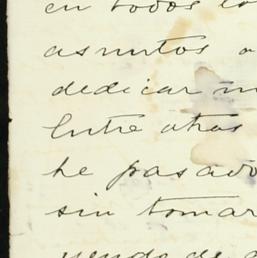 en todos lo
asuntos a
dedicar m
Entre otras
he pasado
sin tomar